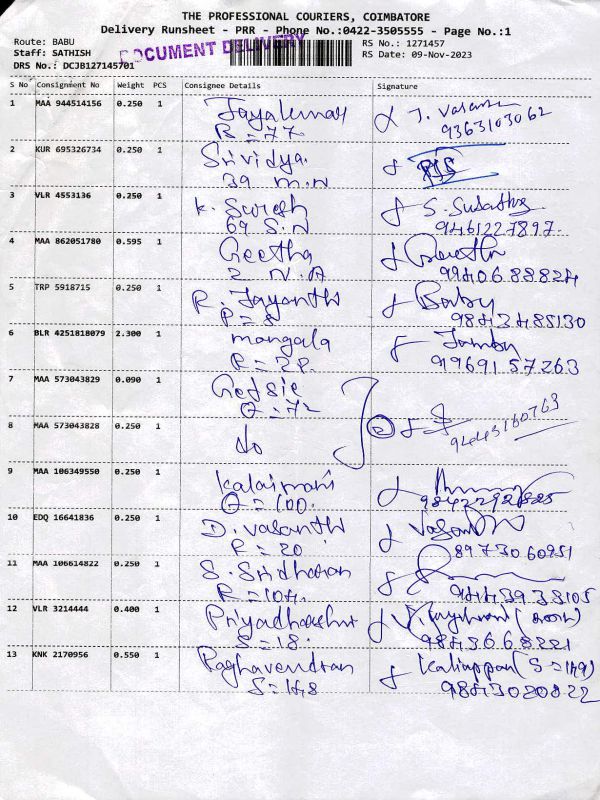 THE PROFESSIONAL COURIERS, COIMBATORE
Delivery Runsheet - PRR - Phone No.:0422-3505555 - Page No.:1
Route: BABU
RS No.: 1271457
Staff: SATHISH
DOCUMENT DELIVERY
RS Date: 09-Nov-2023
DRS No.: DCJB127145701
S No Consignment No Weight PCS Consignee Details Signature
1 MAA 944514156 0.250 1 Jayakumar
R = 77
9363103062
2 KUR 695326734 0.250 1 Srividya.
39 M.N
3 VLR 4553136 0.250 1 K. Suresh
69 S.N
9461227897
4 MAA 862051780 0.595 1 Geetha Geetha
2 N.A 9940688824
5 TRP 5918715 0.250 1 R. Jayanthi Baby
P = 8 9843485130
6 BLR 4251818079 2.300 1 mangala
R = 28.
9196915 7263
7 MAA 573043829 0.090 1
Q = 72
8 MAA 573043828 0.250 1 do
9443160763
9 MAA 106349550 0.250 1 Kalaimani
Q = 100.
10 EDQ 16641836 0.250 1 D. Vasanthi
R = 20
89730 60951
11 MAA 106614822 0.250 1 S. Sridharan
R = 104.
94439 38105
12 VLR 3214444 0.400 1 Priyadharshni
S = 18.
98436 68221
13 KNK 2170956 0.550 1 Raghavendran Kaliappan (S = 149)
S = 148 9843020822